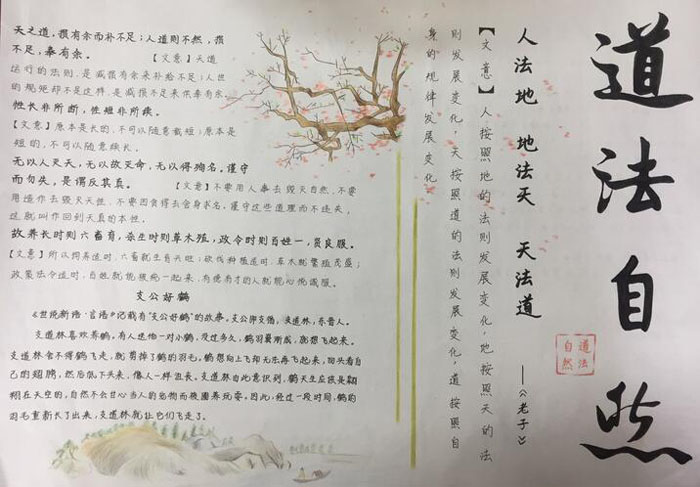 道法自然
道法
自然
人法地 地法天 天法道
——《老子》
【文意】人按照地的法则发展变化，地按照天的法
则发展变化，天按照道的法则发展变化，道按照自
身的规律发展变化。
天之道，损有余而补不足；人道则不然，损
不足，奉有余。 【文意】天道
运行的法则，是减损有余来补给不足；人世
的规则却不是这样，是减损不足来供奉有余。
性长非所断，性短非所续。
【文意】原本是长的，不可以随意截短；原本是
短的，不可以随意续长。
无以人灭天，无以故灭命，无以得殉名。谨守
而勿失，是谓反其真。 【文意】不要用人事去毁灭自然，不要
用造作去毁灭天性，不要因贪得去舍身求名，谨守这些道理而不违失，
这就叫作回到天真的本性。
故养长时则六畜育，杀生时则草木殖，政令时则百姓一，贤良服。
【文意】所以饲养适时，六畜就生育兴旺；砍伐种植适时，草木就繁殖茂盛；
政策法令适时，百姓就能被统一起来，有德有才的人就能心悦诚服。
支公好鹤
《世说新语·言语》记载有“支公好鹤”的故事。支公即支遁，支道林，东晋人。
支道林喜欢养鹤。有人送他一对小鹤，没过多久，鹤羽最渐成，就想飞起来。
支道林舍不得鹤飞走，就剪掉了鹤的羽毛。鹤想向上飞却无法再飞起来，回头看自
己的翅膀，然后低下头来，像人一样沮丧。支道林由此意识到，鹤天生应该是翱
翔在天空的，自然不会甘心当人的宠物而被圈养玩耍。因此，经过一段时间，鹤的
羽毛重新长了出来，支道林就让它们飞走了。